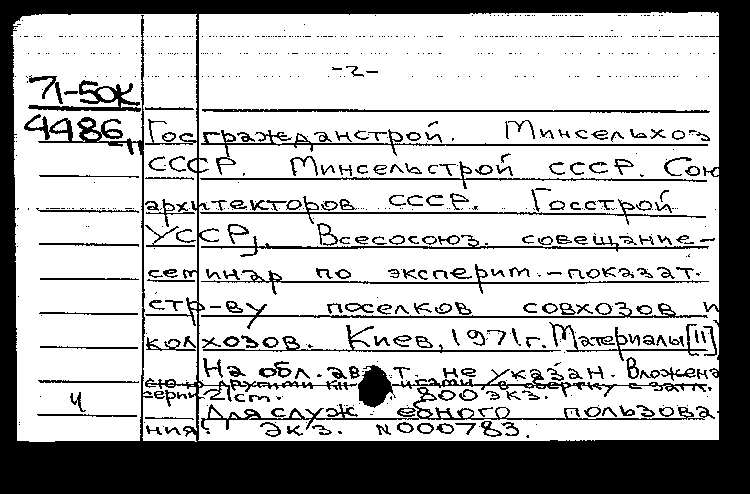 -2-
71-50К
4486 Госгражданстрой. Минсельхоз
-11
СССР. Минсельстрой СССР. Сою
архитекторов СССР. Госстрой
УССР]. Всесосоюз. совещание-
семинар по эксперим.-показат.
стр-ву поселков совхозов и
колхозов. Киев, 1971г. Материалы[11]
На обл. авт. не указан. Вложена
другими в обертку с загл.
серии 21ст. 800 экз.
Для служебного пользова-
ч
ния! Экз. N000783.